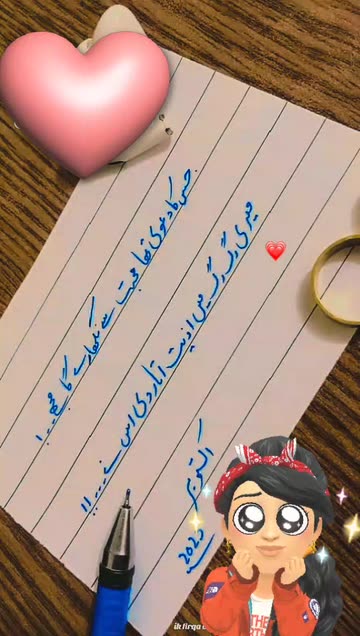 جس کا دعویٰ تھا محبت سے نکھارے گا مجھے...!
میری رگ رگ میں اذیت اتار دی اس نے...!!
اکتوبر
2025
THE
ik firqa